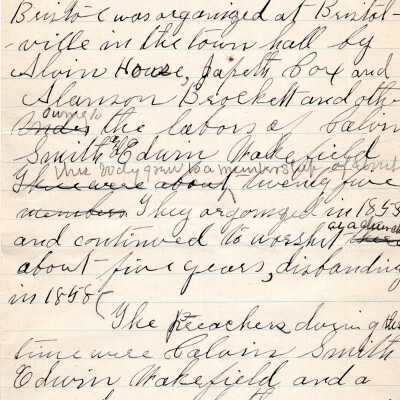 Bristol was organized at Bristol-
-ville in the town hall by
Alvin House, Japeth Cox and
Alanson Brockett and oth
During
Under the labors of Calvin
Smith & Edwin Wakefield
This body grew to a membership of about
There were about twenty five
members They organized in 1858
as a church
and continued to worship
about five years, disbanding
in 1858
The Preachers during this
time were Calvin Smith
Edwin Wakefield and a